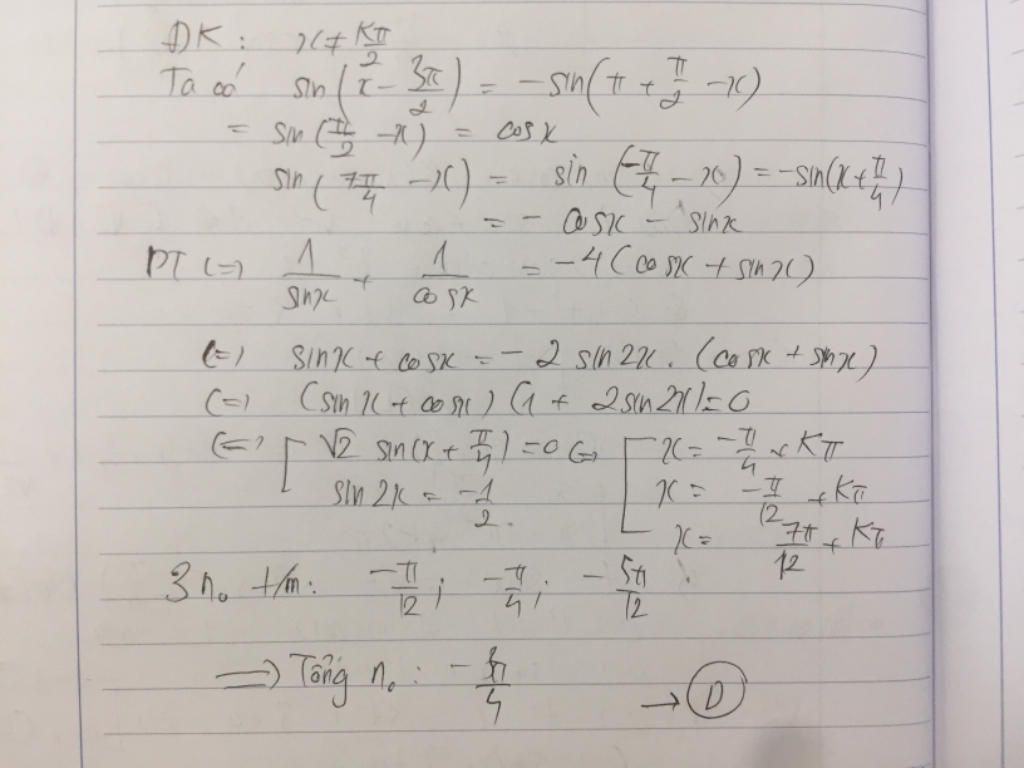 ĐK: x ≠ Kπ/2
Ta có sin(x - 3π/2) = -sin(π + π/2 - x)
= sin(π/2 - x) = cosx
sin(7π/4 - x) = sin(-π/4 - x) = -sin(x + π/4)
= - cosx - sinx
PT <=> 1/sinx + 1/cosx = -4(cosx + sinx)
<=> sinx + cosx = -2 sin2x. (cosx + sinx)
<=> (sinx + cosx)(1 + 2sin2x) = 0
<=> [ √2 sin(x + π/4) = 0 <=> [ x = -π/4 + Kπ
sin2x = -1/2. x = -π/12 + Kπ
x = 7π/12 + Kπ
3 n₀ t/m: -π/12; -π/4; -5π/12
=> Tổng n₀: -3π/4 → D